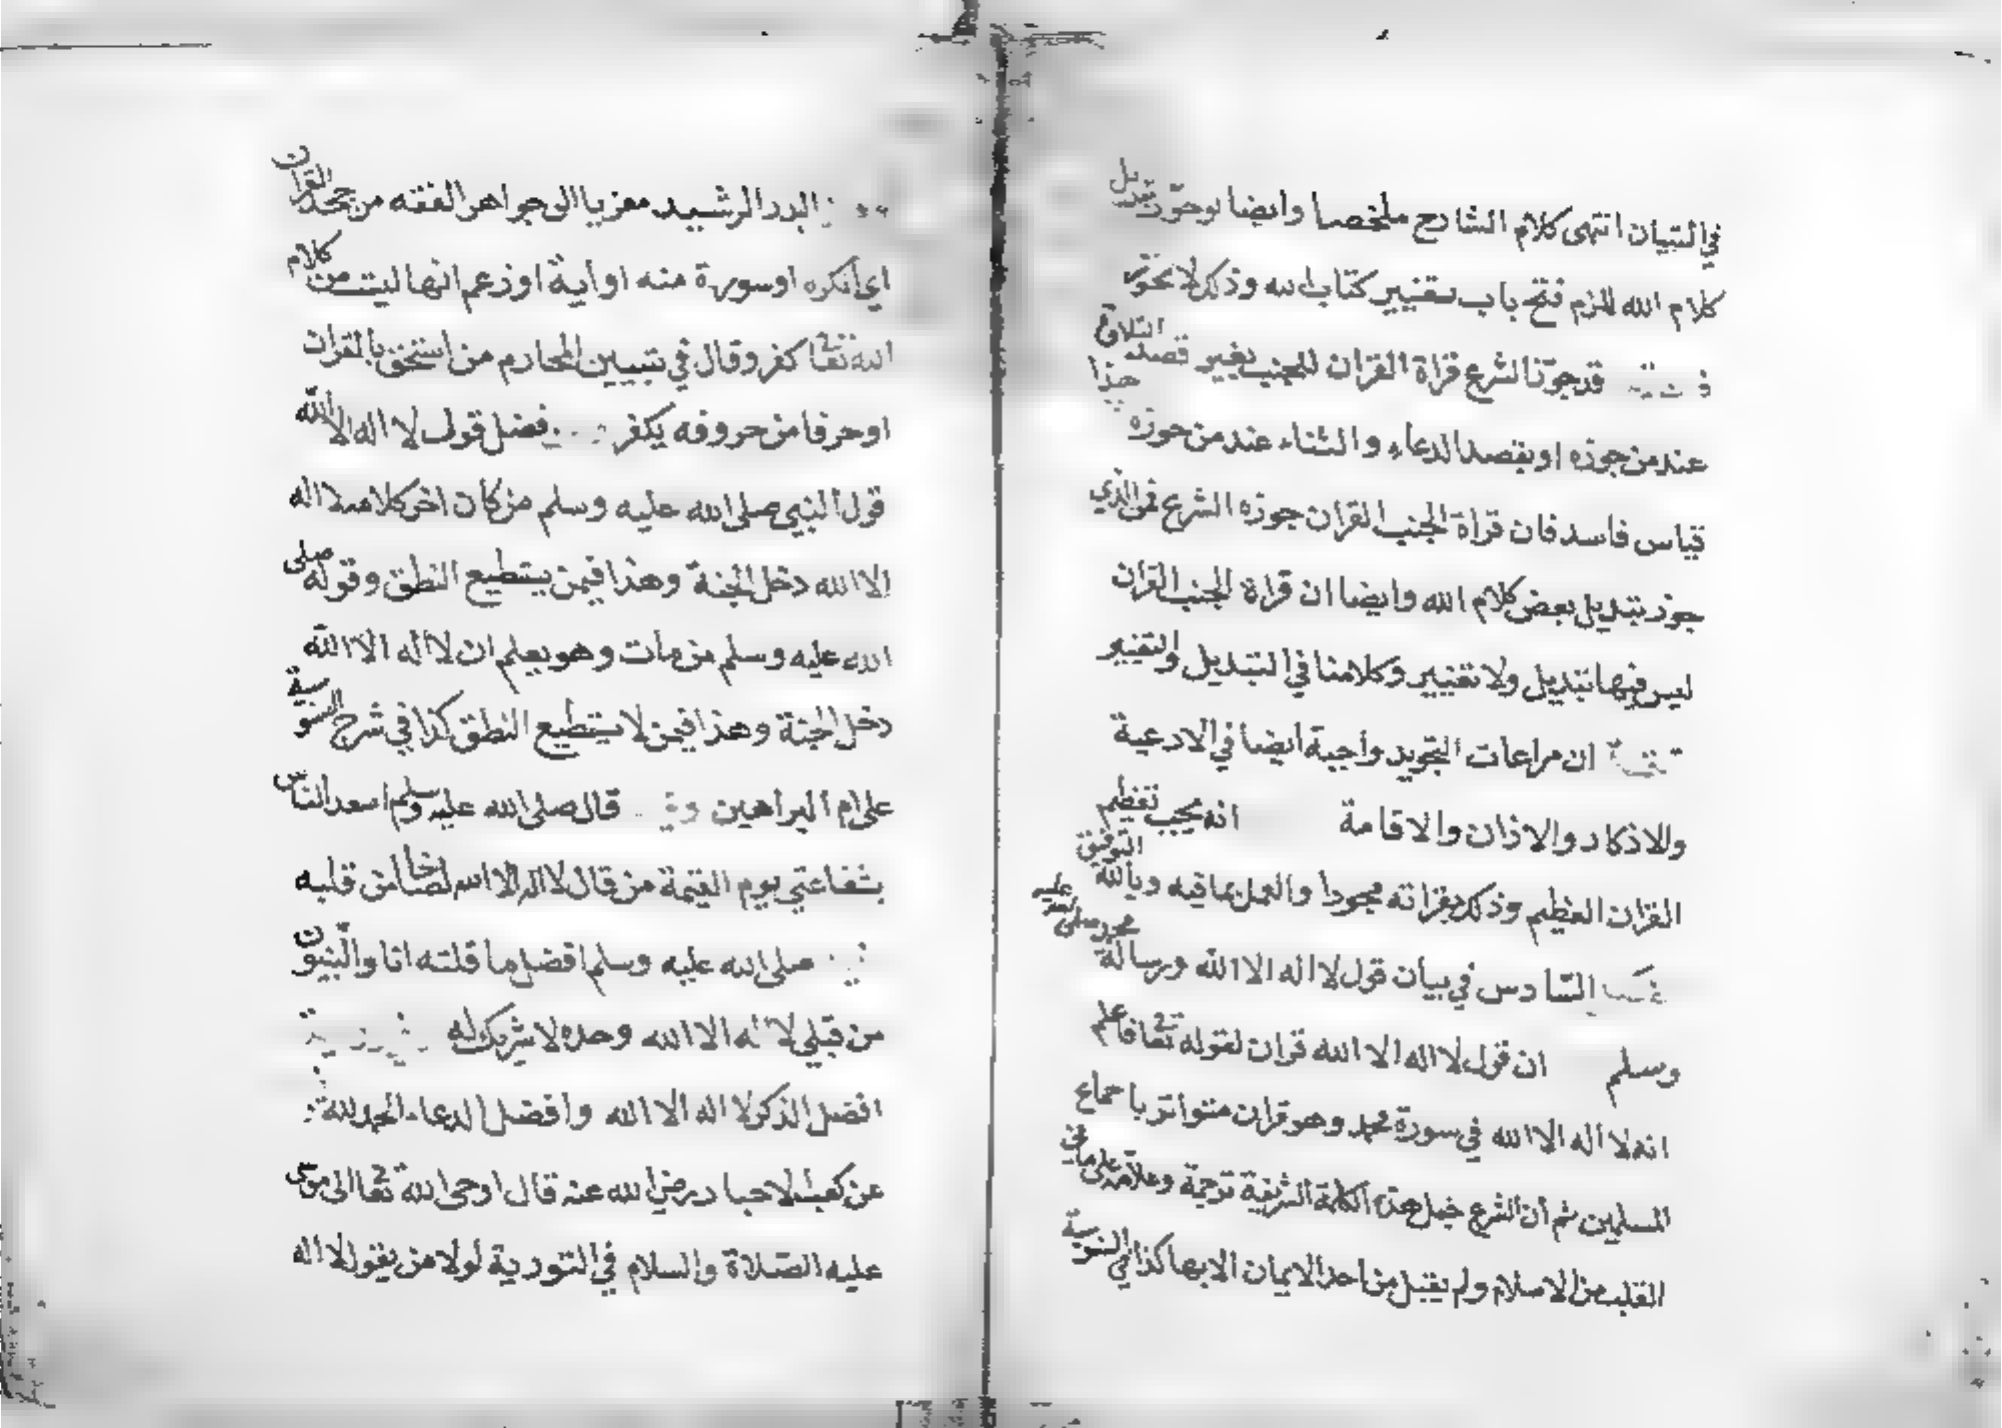 في التبيان انتهى كلام الشارح ملخصا وايضا لوجوّز تبديل
كلام الله للزم فتح باب تغيير كتاب الله وذلك لا يجوز
قد جوّز الشرع قراة القران للجنب بغير قصد التلاوة
عند من جوزه او بقصد الدعاء والثناء عند من جوزه هذا
قياس فاسد فان قراة الجنب القران جوزه الشرع فمن الذي
جوز تبديل بعض كلام الله وايضا ان قراة الجنب القران
ليس فيها تبديل ولا تغيير وكلامنا في التبديل والتغيير
ان مراعات التجويد واجبة ايضا في الادعية
والاذكار والاذان والاقامة انه يجب تعظيم
القران العظيم وذلك بقراته مجودا والعمل بما فيه وبالله التوفيق
السّادس في بيان قول لا اله الا الله ورسالة محمد صلى الله عليه
وسلم ان قول لا اله الا الله قران لقوله تعا فاعلم
انه لا اله الا الله في سورة محمد وهو قران متواتر باجماع
المسلمين ثم ان الشرع جعل هذه الكلمة الشريفة ترجمة وعلامة على ما في
القلب من الاسلام ولم يقبل من احد الايمان الا بها كذا في السنوسية
البدر الرشيد معزيا الى جواهر الفقه من جحد القران
اي انكره او سورة منه او اية او زعم انها ليت من كلام
الله تعا كفر وقال في تبيين المحارم من استخف بالقران
او حرفا من حروفه يكفر فضل قول لا اله الا الله
قول النبي صلى الله عليه وسلم من كان اخر كلامه لا اله
الا الله دخل الجنة وهذا فيمن يستطيع النطق وقوله صلى
الله عليه وسلم من مات وهو يعلم ان لا اله الا الله
دخل الجنة وهذا فيمن لا يستطيع النطق كذا في شرح السنوسية
على ام البراهين قال صلى الله عليه وسلم اسعد الناس
بشفاعتي يوم القيمة من قال لا اله الا الله خالصا من قلبه
صلى الله عليه وسلم افضل ما قلته انا والنّبيون
من قبلي لا اله الا الله وحده لا شريك له
افضل الذكر لا اله الا الله وافضل الدعاء الحمد لله
عن كعب الاحبار رضي الله عنه قال اوحى الله تعا الى موسى
عليه الصّلاة والسلام في التورية لولا من يقول لا اله